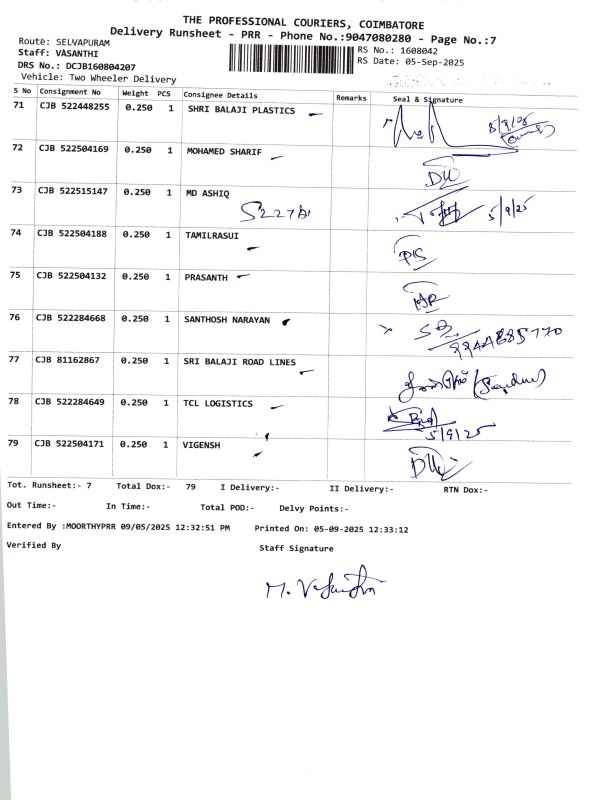 THE PROFESSIONAL COURIERS, COIMBATORE
Delivery Runsheet - PRR - Phone No.:9047080280 - Page No.:7
Route: SELVAPURAM
Staff: VASANTHI RS No.: 1608042
DRS No.: DCJB160804207 RS Date: 05-Sep-2025
Vehicle: Two Wheeler Delivery
S No Consignment No Weight PCS Consignee Details Remarks Seal & Signature
71 CJB 522448255 0.250 1 SHRI BALAJI PLASTICS
72 CJB 522504169 0.250 1 MOHAMED SHARIF
73 CJB 522515147 0.250 1 MD ASHIQ 5/9/25
74 CJB 522504188 0.250 1 TAMILRASUI
75 CJB 522504132 0.250 1 PRASANTH
76 CJB 522284668 0.250 1 SANTHOSH NARAYAN
9944885770
77 CJB 81162867 0.250 1 SRI BALAJI ROAD LINES
78 CJB 522284649 0.250 1 TCL LOGISTICS
5/9/25
79 CJB 522504171 0.250 1 VIGENSH
Tot. Runsheet:- 7 Total Dox:- 79 I Delivery:- II Delivery:- RTN Dox:-
Out Time:- In Time:- Total POD:- Delvy Points:-
Entered By :MOORTHYPRR 09/05/2025 12:32:51 PM Printed On: 05-09-2025 12:33:12
Verified By Staff Signature